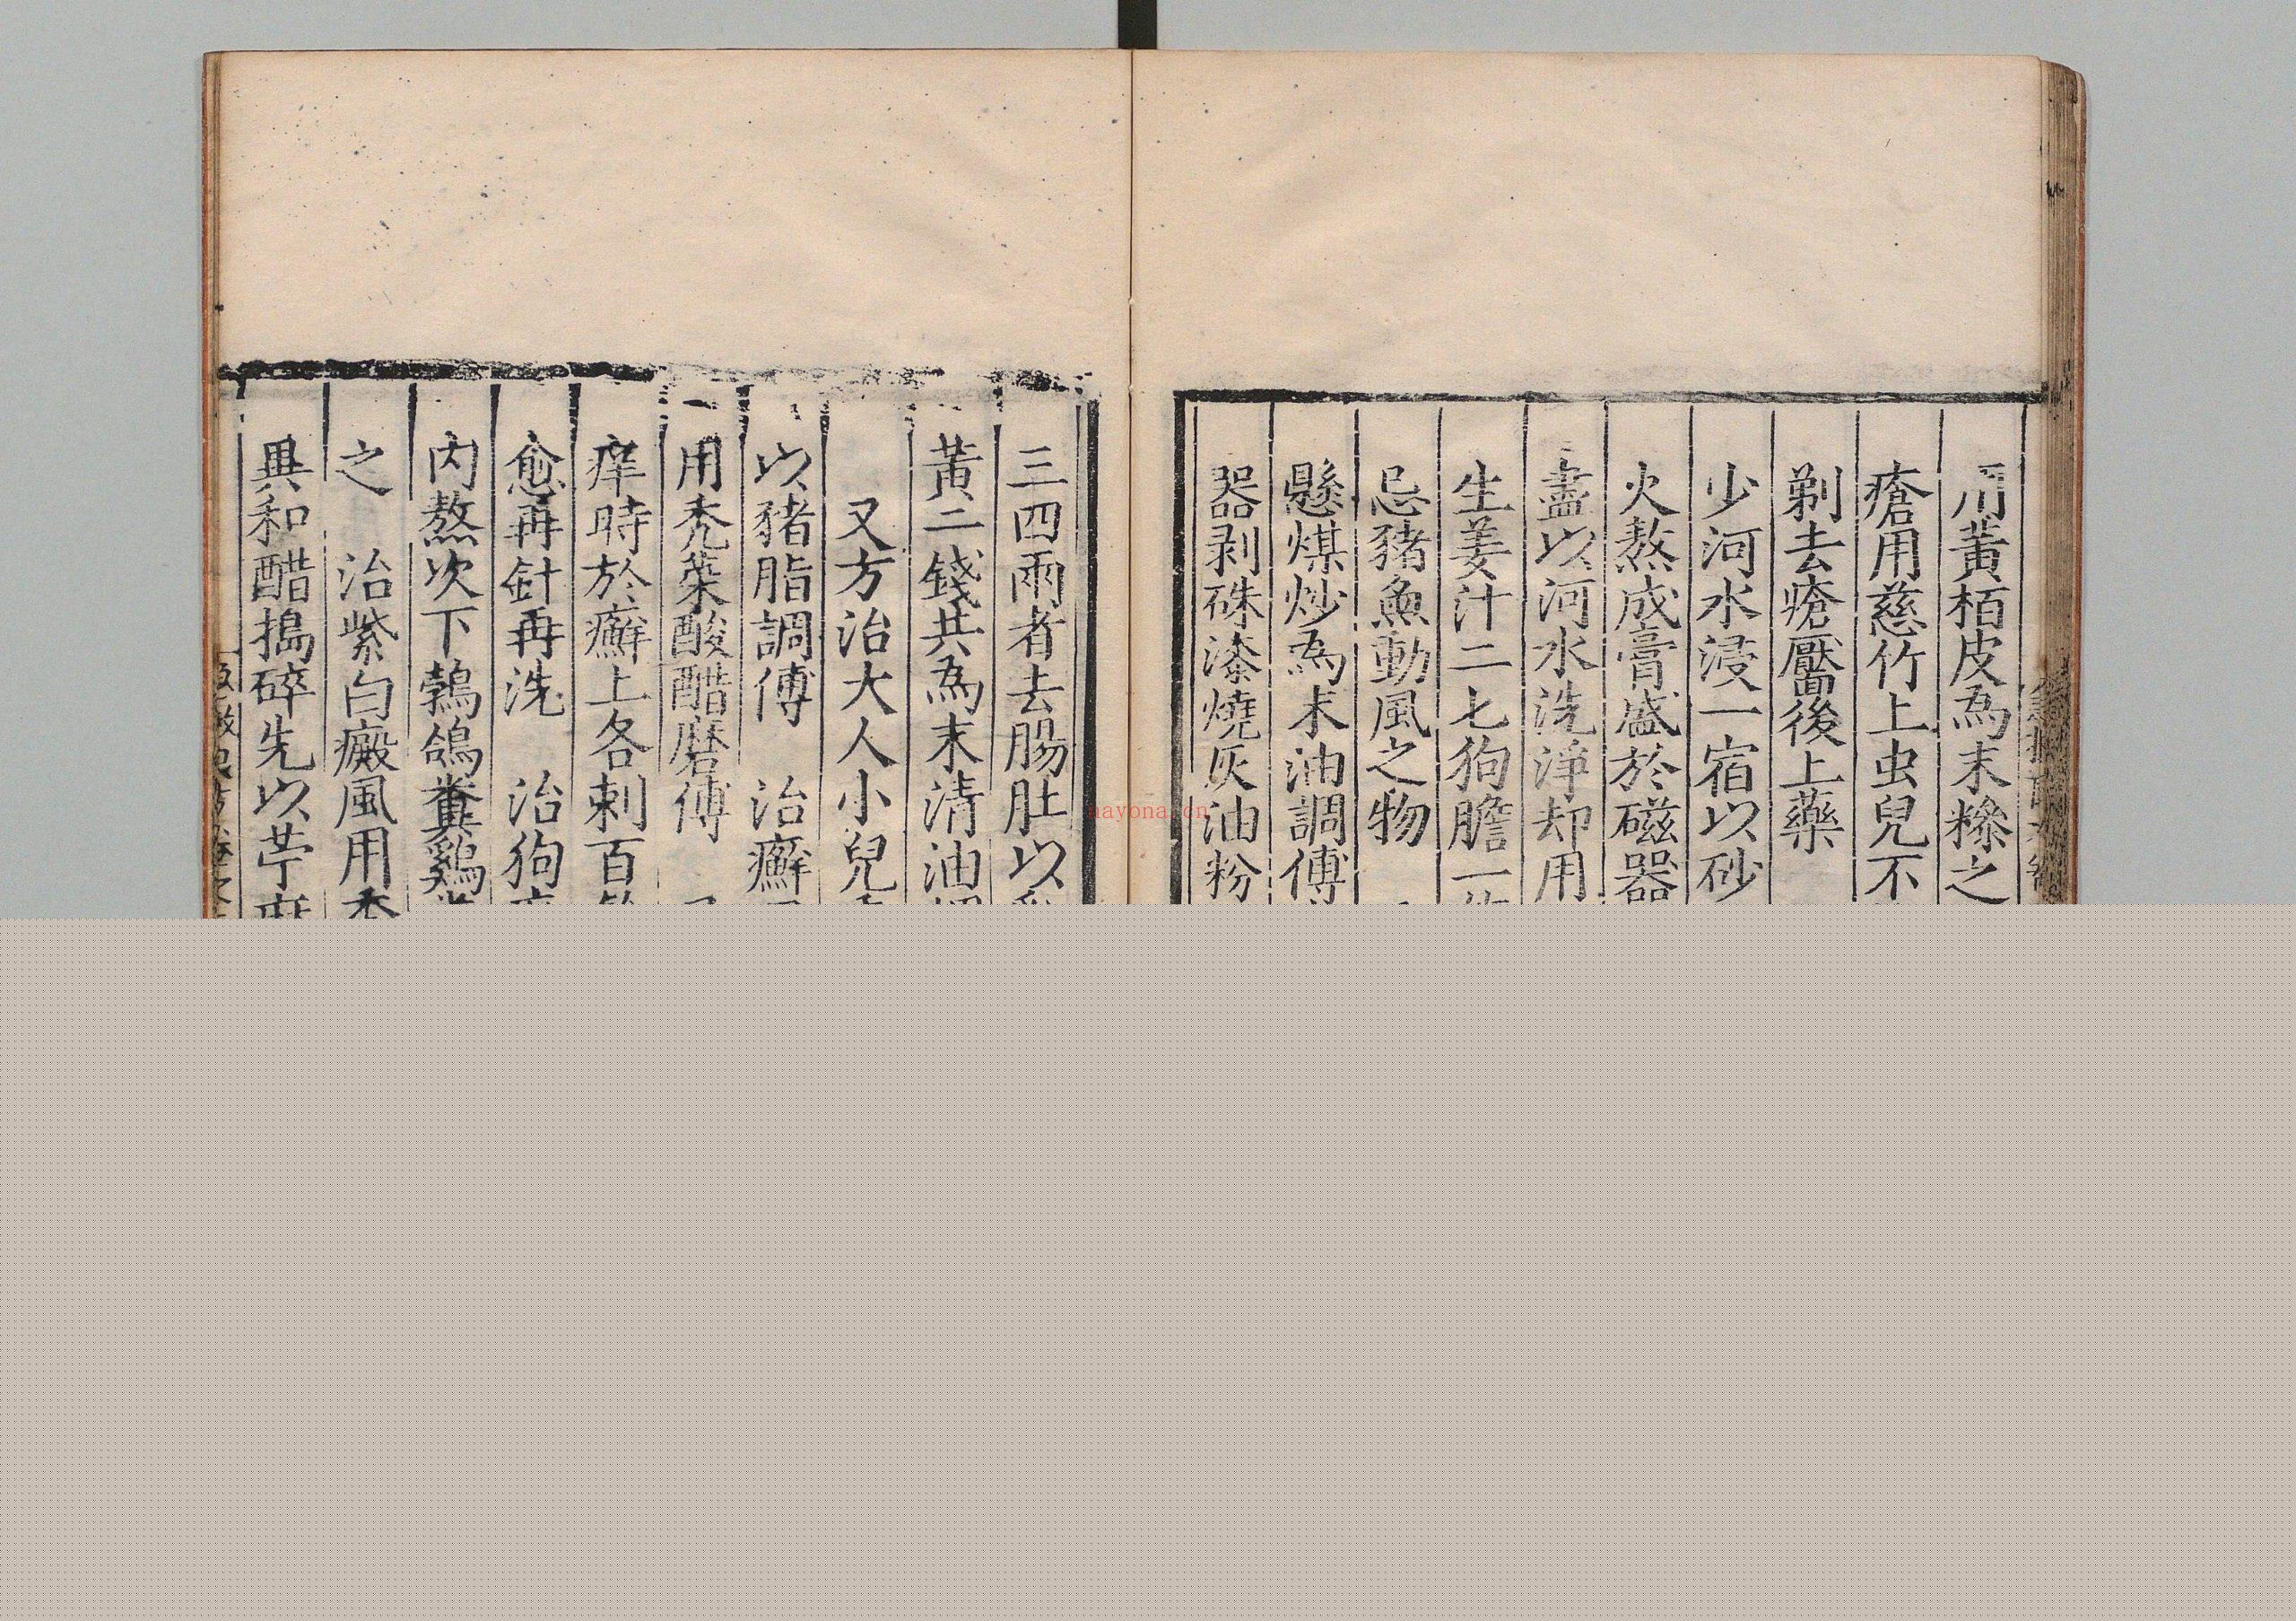 用黃栢皮為末糝之
瘡用慈竹上虫兒不
剃去瘡靨後上藥
少河水浸一宿以砂
火熬成膏盛於磁器
盡以河水洗淨却用
生姜汁二七狗膽一
忌猪魚動風之物
懸煤炒為末油調傅
器剥硃漆燒灰油粉
三四兩者去腸肚以
黃二錢共為末清油
又方治大人小兒
以猪脂調傅 治癬
一用禿菜酸醋磨傅
痒時於癬上各刺百
愈再針再洗 治狗
內熬次下鵓鴿糞鷄
之 治紫白癜風用
與和醋搗碎先以苧